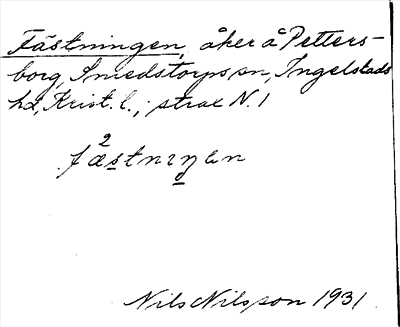 Fästningen, åker å Petters-
borg, Smedstorps sn, Ingelstads
hd, Krist. l.; strax N. 1
fæ²stnıŋ̥ən
Nils Nilsson 1931